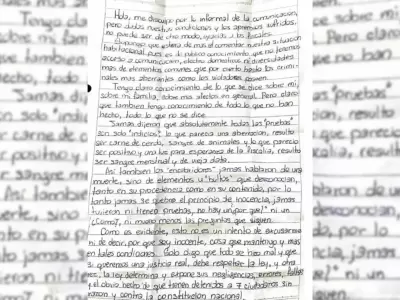 Hola, me disculpo por lo informal de la comunicación,
pero dadas nuestras condiciones y los apremios sufridos,
no puede ser de otro modo, gracias a los fiscales.
Supongo que estara de mas el comentar nuestra situación
habitacional pues es de publico conocimiento que no tenemos
acceso a comunicación, electro domesticos ni diversidades
mas de elementos comunes que por cierto hasta los crimi-
nales mas aberrantes como los violadores poseen.
Tengo claro conocimiento de lo que se dice sobre mi,
sobre mi familia, sobre mis afectos en general. Pero claro
que tambien tengo conocimiento de todo lo que no han
hecho, todo lo que no se dice.
Jamas dijeron que absolutamente todas las "pruebas"
son solo "indicios": lo que parecia una aberracion, resulto
ser carne de cerdo, sangre de animales y lo que parecio
ser positivo y una luz para esperanza de la Fiscalia, resulto
ser sangre menstrual y de vieja data.
Asi tambien los jamas hablaron de una
muerte, sino de elementos u "bultos" que desconocian,
tanto en su procedencia como en su contenido, por lo
tanto jamas se quebro el principio de inocencia, jamas
tuvieron ni tienen pruebas, no hay un ¿por que? ni un
¿Como?, ni mucho menos las preguntas que siguen.
Como es evidente, esto no es un intento de excusarme
ni de decir por que soy inocente, cosa que mantengo y mas
en tales condiciones. Solo digo que todo se hizo mal y que
si queremos una justicia real, debe respetar la ley, y otra
vez, la ley determina y expone sus negligencias, errores, fallas
y el obvio hecho de que tienen detenidos a 7 ciudadanos sin
razon y contra la constitucion nacional.